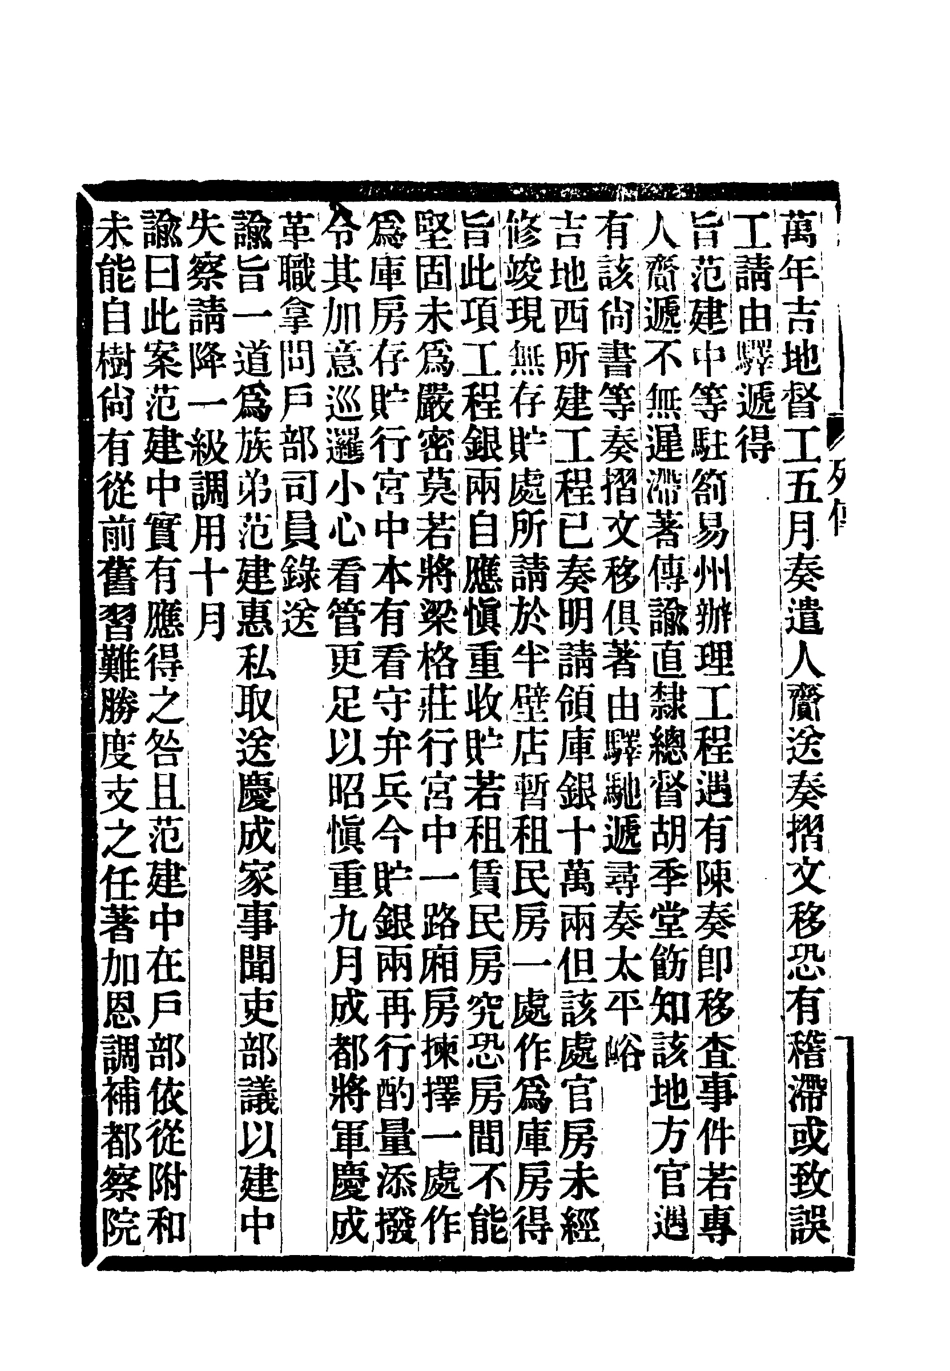 列傳
萬年吉地督工五月奏遣人齎送奏摺文移恐有稽滯或致誤
工請由驛遞得
旨范建中等駐劄易州辦理工程遇有陳奏卽移查事件若專
人齎遞不無遲滯著傳諭直隸總督胡季堂飭知該地方官遇
有該尙書等奏摺文移俱著由驛馳遞尋奏太平峪
吉地西所建工程已奏明請領庫銀十萬兩但該處官房未經
修竣現無存貯處所請於半壁店暫租民房一處作爲庫房得
旨此項工程銀兩自應愼重收貯若租賃民房究恐房間不能
堅固未爲嚴密莫若將梁格莊行宮中一路廂房揀擇一處作
爲庫房存貯行宮中本有看守弁兵今貯銀兩再行酌量添撥
令其加意巡邏小心看管更足以昭愼重九月成都將軍慶成
革職拿問戶部司員錄送
諭旨一道爲族弟范建惠私取送慶成家事聞吏部議以建中
失察請降一級調用十月
諭曰此案范建中實有應得之咎且范建中在戶部依從附和
未能自樹尙有從前舊習難勝度支之任著加恩調補都察院